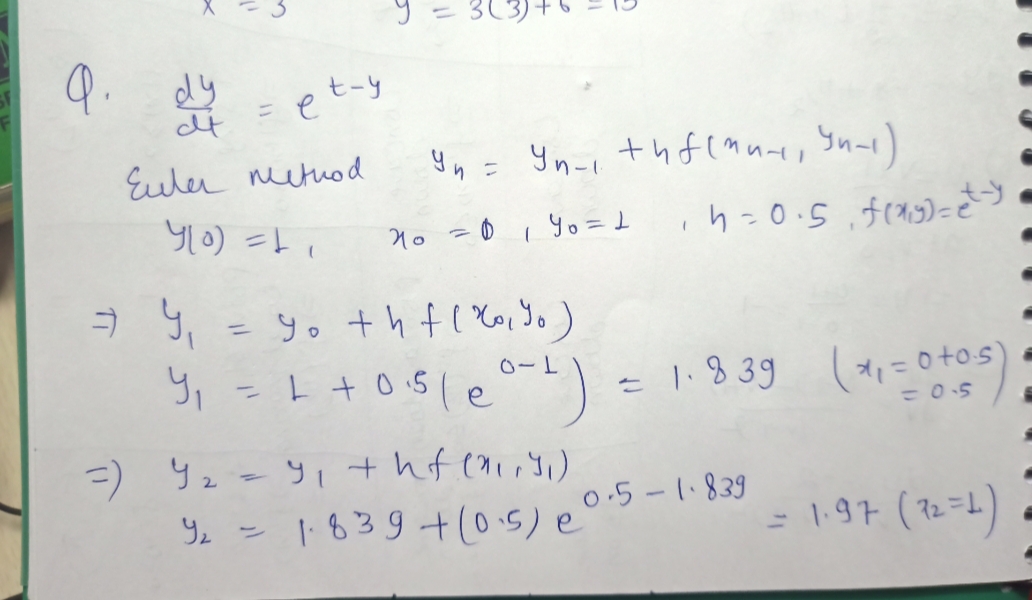 x = 3 y = 3(3)+6 = 15
Q. dy/dt = e^{t-y}
Euler method y_n = y_{n-1} + h f(x_{n-1}, y_{n-1})
y(0) = 1, x_0 = 0, y_0 = 1, h = 0.5, f(x,y) = e^{t-y}
⇒ y_1 = y_0 + h f(x_0, y_0)
y_1 = 1 + 0.5(e^{0-1}) = 1.839 (x_1 = 0+0.5
= 0.5)
⇒) y_2 = y_1 + h f(x_1, y_1)
y_2 = 1.839 + (0.5) e^{0.5-1.839} = 1.97 (x_2=1)